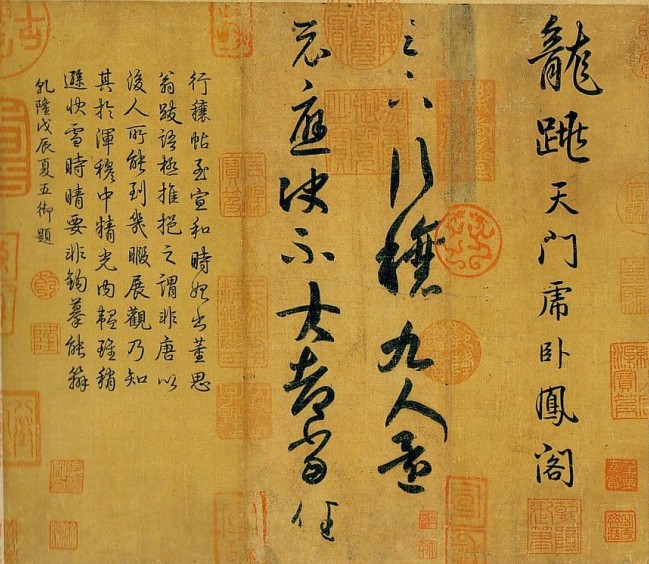 龍跳天門虎臥鳳閣
足下行穰九人還
示應決不大都當佳
行穰帖至宣和時始出董思
翁跋語極推挹之謂非唐以
後人所能到幾暇展觀乃知
其於渾穆中精光內韞雖稍
遜快雪時晴要非鉤摹能辦
乾隆戊辰夏五御題